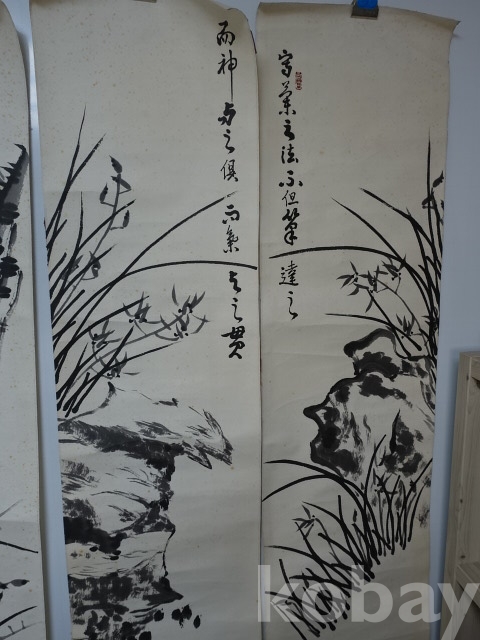 寫蘭之法不但筆達之
而神與之俱而氣與之貫
kobay